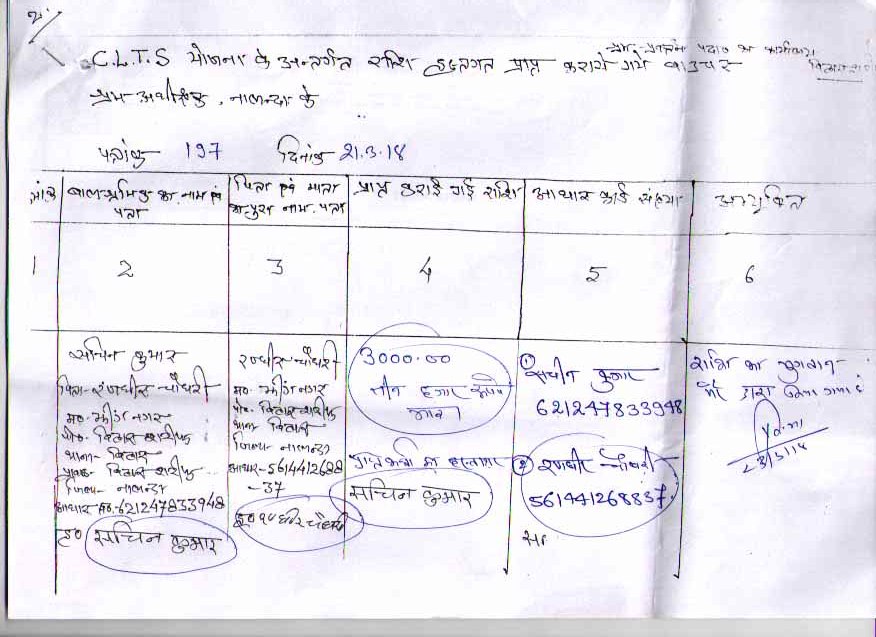 C.L.T.S योजना के अन्तर्गत राशि हस्तगत प्राप्त कराये गये वाउचर
श्रम अधीक्षक, नालन्दा के
पत्रांक 197 दिनांक 21.3.18
बालश्रमिक का नाम एवं पता
पिता एवं माता का पुरा नाम, पता
प्राप्त कराई गई राशि
आधार कार्ड संख्या
अभ्युक्ति
1 2 3 4 5 6
सचिन कुमार
पिता-रणधीर चौधरी
मo- झींगनगर
पोo- बिहार शरीफ
थाना- बिहार
प्रखंड- बिहार शरीफ
जिला- नालन्दा
आधार नंo-621247833948
हo सचिन कुमार
रणधीर चौधरी
मo- झींगनगर
पोo- बिहार शरीफ
थाना बिहार
जिला- नालन्दा
आधार-5614412688
-37
हo रणधीर चौधरी
3000.00
तीन हजार रूपये
मात्र।
सचिन कुमार
① सचीन कुमार
621247833948
② रणधीर चौधरी
561441268837
राशि का भुगतान
मेरे द्वारा किया गया है